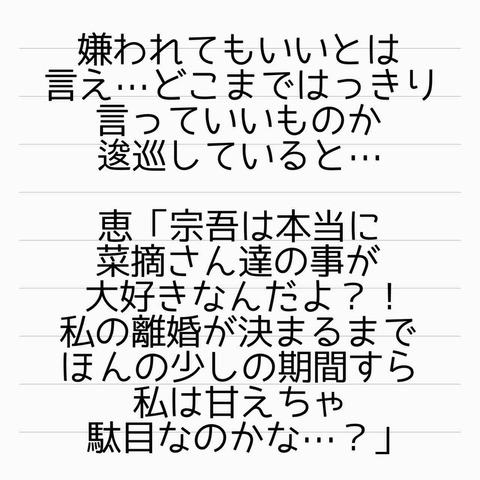 嫌われてもいいとは
言え…どこまではっきり
言っていいものか
逡巡していると…
恵「宗吾は本当に
菜摘さん達の事が
大好きなんだよ？！
私の離婚が決まるまで
ほんの少しの期間すら
私は甘えちゃ
駄目なのかな…？」